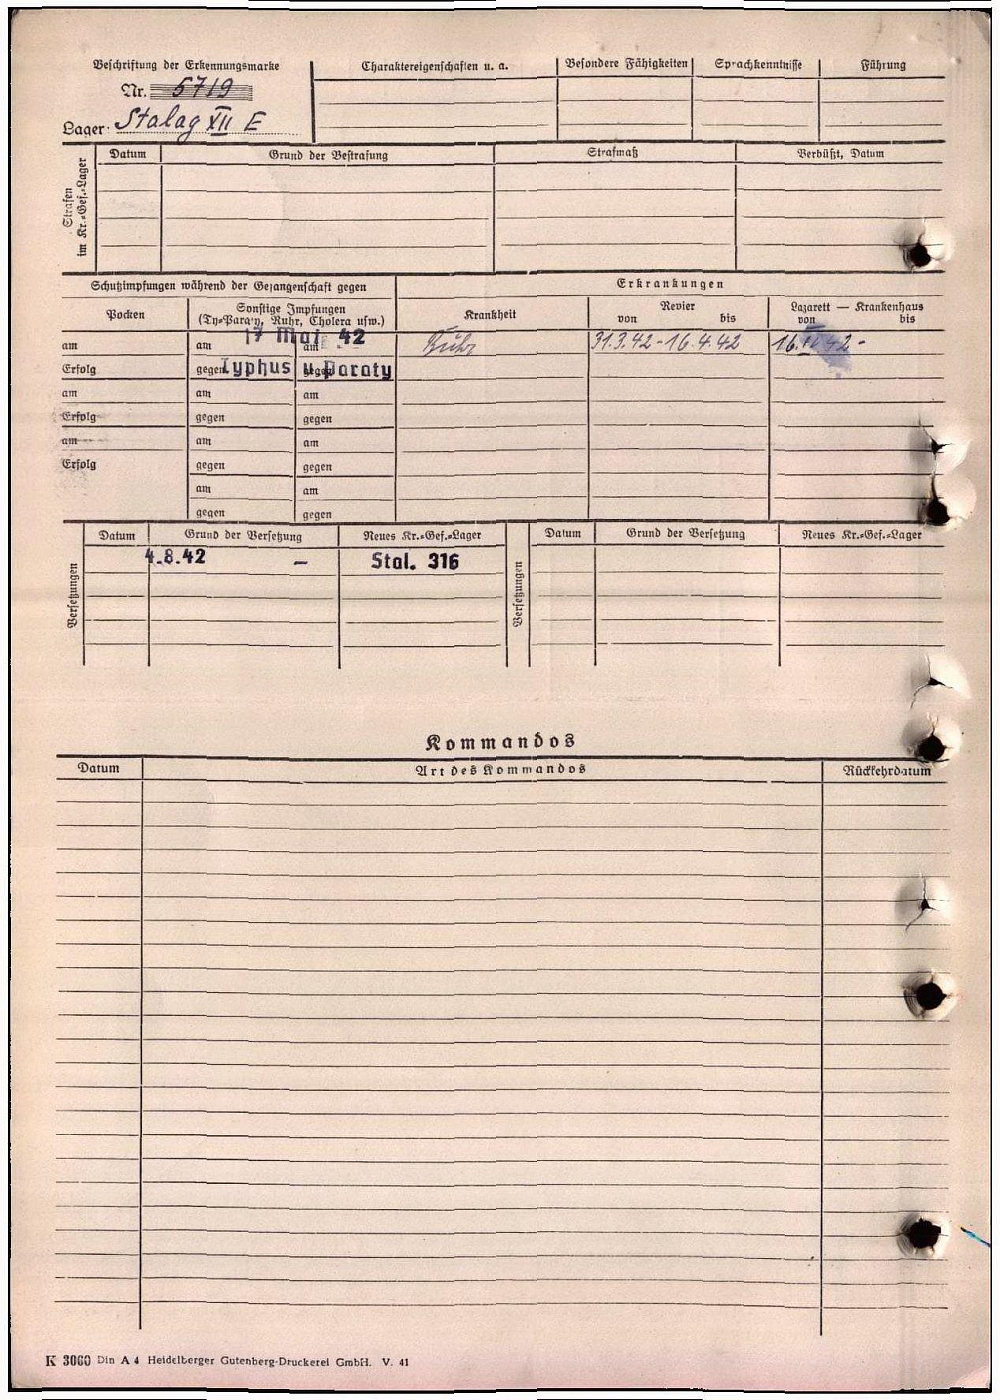 Beschriftung der Erkennungsmarke
Nr. 5719
Lager: Stalag XII E
Charaktereigenschaften u. a.
Besondere Fähigkeiten
Sprachkenntnisse
Führung
Strafen im Kr.=Gef.=Lager
Datum
Grund der Bestrafung
Strafmaß
Verbüßt, Datum
Schutzimpfungen während der Gefangenschaft gegen
Erkrankungen
Pocken
Sonstige Impfungen
(Ty=Para'y, Ruhr, Cholera usw.)
Krankheit
Revier
von bis
Lazarett — Krankenhaus
von bis
am
am 17 Mai 42
am
Ruhr
31.3.42-16.4.42
16.IV 42-
Erfolg
gegen Typhus u Paraty
gegen
am
am
am
Erfolg
gegen
gegen
am
am
am
Erfolg
gegen
gegen
am
am
gegen
gegen
Versetzungen
Datum
Grund der Versetzung
Neues Kr.=Gef.=Lager
4.8.42
—
Stal. 316
Versetzungen
Datum
Grund der Versetzung
Neues Kr.=Gef.=Lager
Kommandos
Datum
Art des Kommandos
Rückkehrdatum
K 3060 Din A 4 Heidelberger Gutenberg-Druckerei GmbH. V. 41